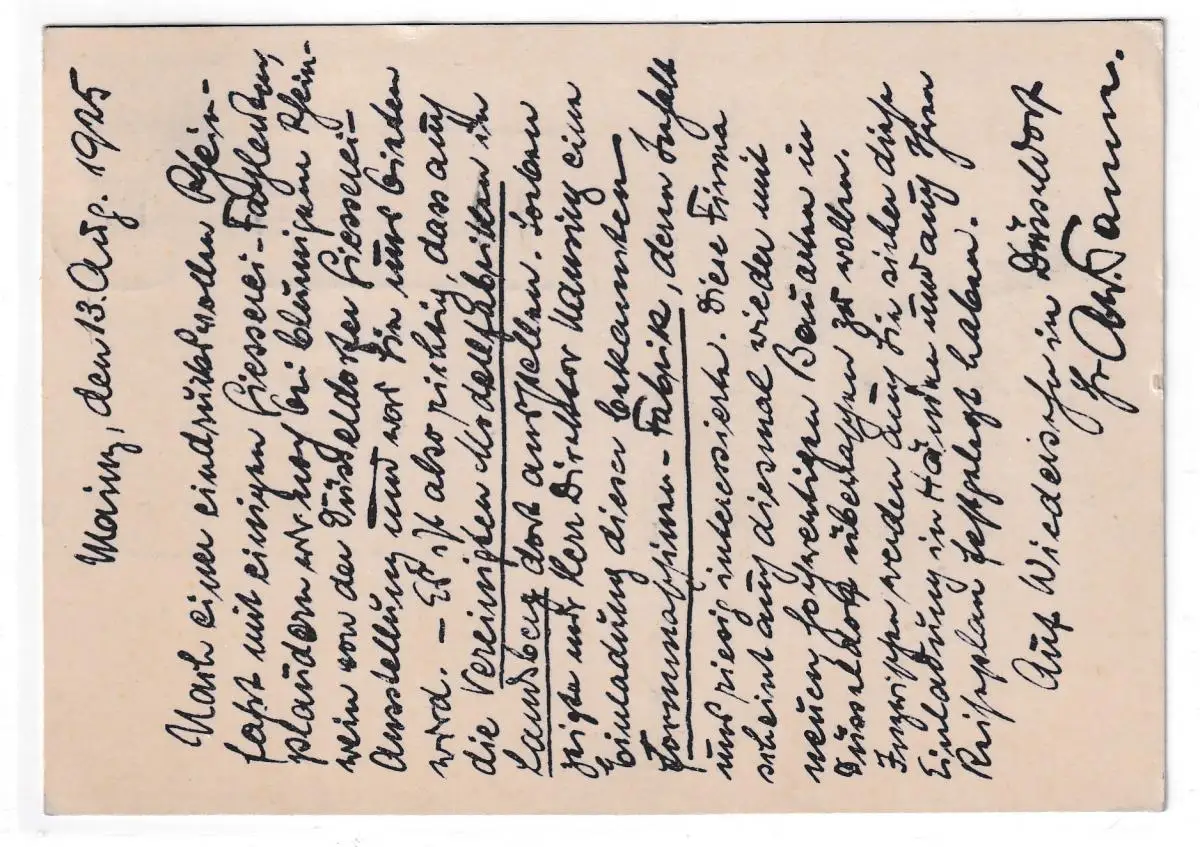 Mainz, den 13. Aug. 1925
Nach einer eindrucksvollen Rhein-
fahrt mit einigen Giesserei-Fachleuten,
plaudern wir noch bei blumigem Rhein-
wein von der Düsseldorfer Giesserei-
Ausstellung und was Sie uns bieten
wird. – Es ist also richtig, dass auch
die Vereinigten Modellfabriken in
Landsberg dort ausstellen. Soeben
zeigte mir Herr Direktor eine
Einladung dieser bekannten
Formmaschinen-Fabrik, deren Inhalt
uns riesig interessierte. Diese Firma
scheint auch diesmal wieder mit
neuen hochwertigen Bauarten in
Düsseldorf überraschen zu wollen.
Inzwischen werden auch Sie sicher diese
Einladung in Händen und auch Ihren
Reiseplan festgelegt haben.
Auf Wiedersehn in Düsseldorf
Ihr